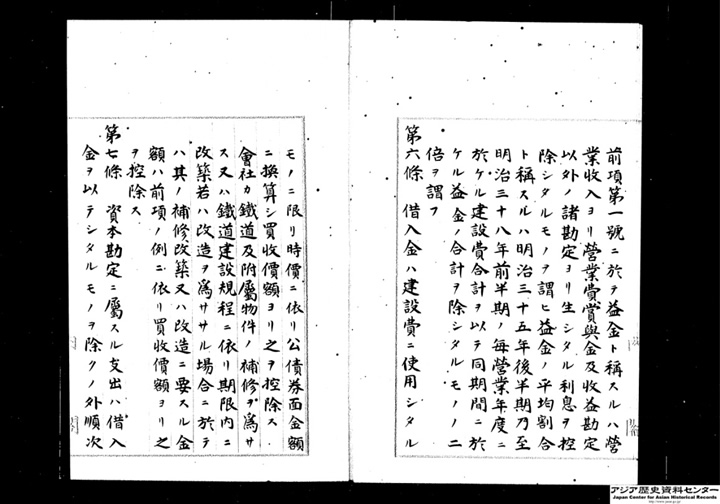 前項第一號ニ於テ益金ト稱スルハ營
業收入ヨリ營業費賞與金及收益勘定
以外ノ諸勘定ヨリ生シタル利息ヲ控
除シタルモノヲ謂ヒ益金ノ平均割合
ト稱スルハ明治三十五年後半期乃至
明治三十八年前半期ノ每營業年度ニ
於ケル建設費合計ヲ以テ同期間ニ於
ケル益金ノ合計ヲ除シタルモノノ二
倍ヲ謂フ
第六條 借入金ハ建設費ニ使用シタル
モノニ限リ時價ニ依リ公債券面金額
ニ換算シ買收價額ヨリ之ヲ控除ス
會社カ鐵道及附屬物件ノ補修ヲ爲サ
ス又ハ鐵道建設規程ニ依リ期限內ニ
改築若ハ改造ヲ爲ササル場合ニ於テ
ハ其ノ補修改築又ハ改造ニ要スル金
額ハ前項ノ例ニ依リ買收價額ヨリ之
ヲ控除ス
第七條 資本勘定ニ屬スル支出ハ借入
金ヲ以テシタルモノヲ除クノ外順次
アジア歴史資料センター
Japan Center for Asian Historical Records